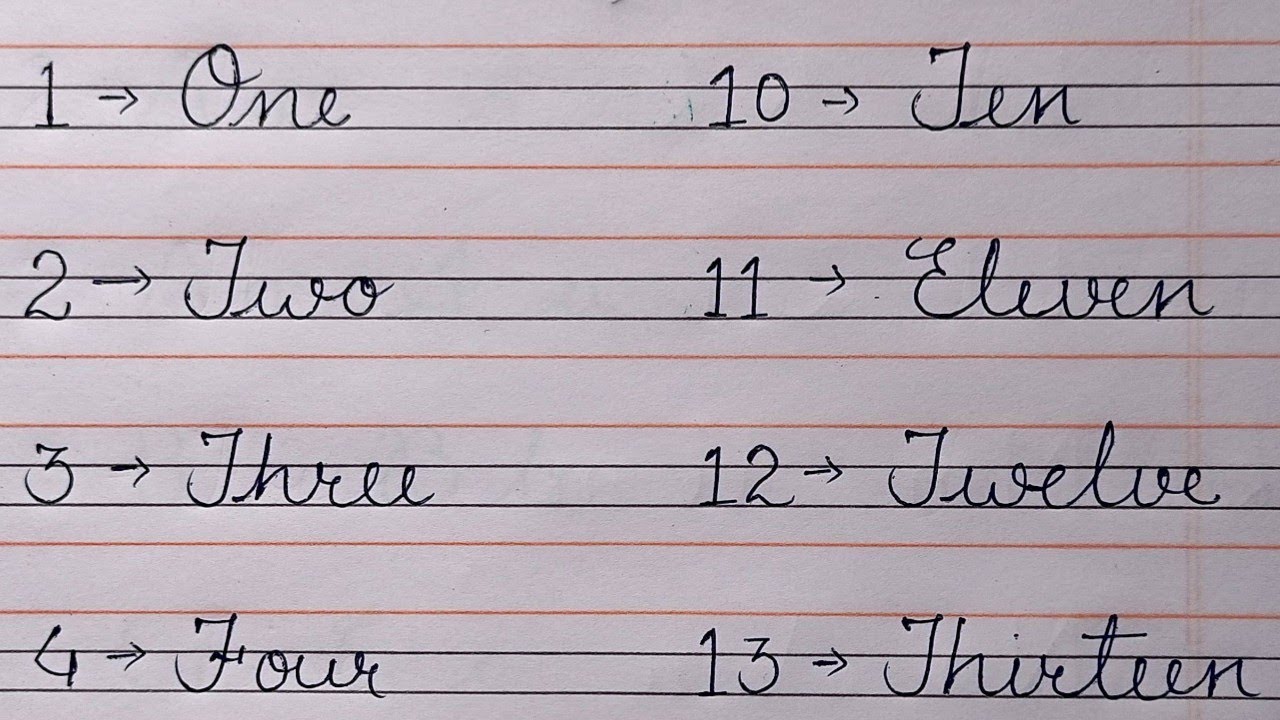 1 → One
2 → Two
3 → Three
4 → Four
10 → Ten
11 → Eleven
12 → Twelve
13 → Thirteen